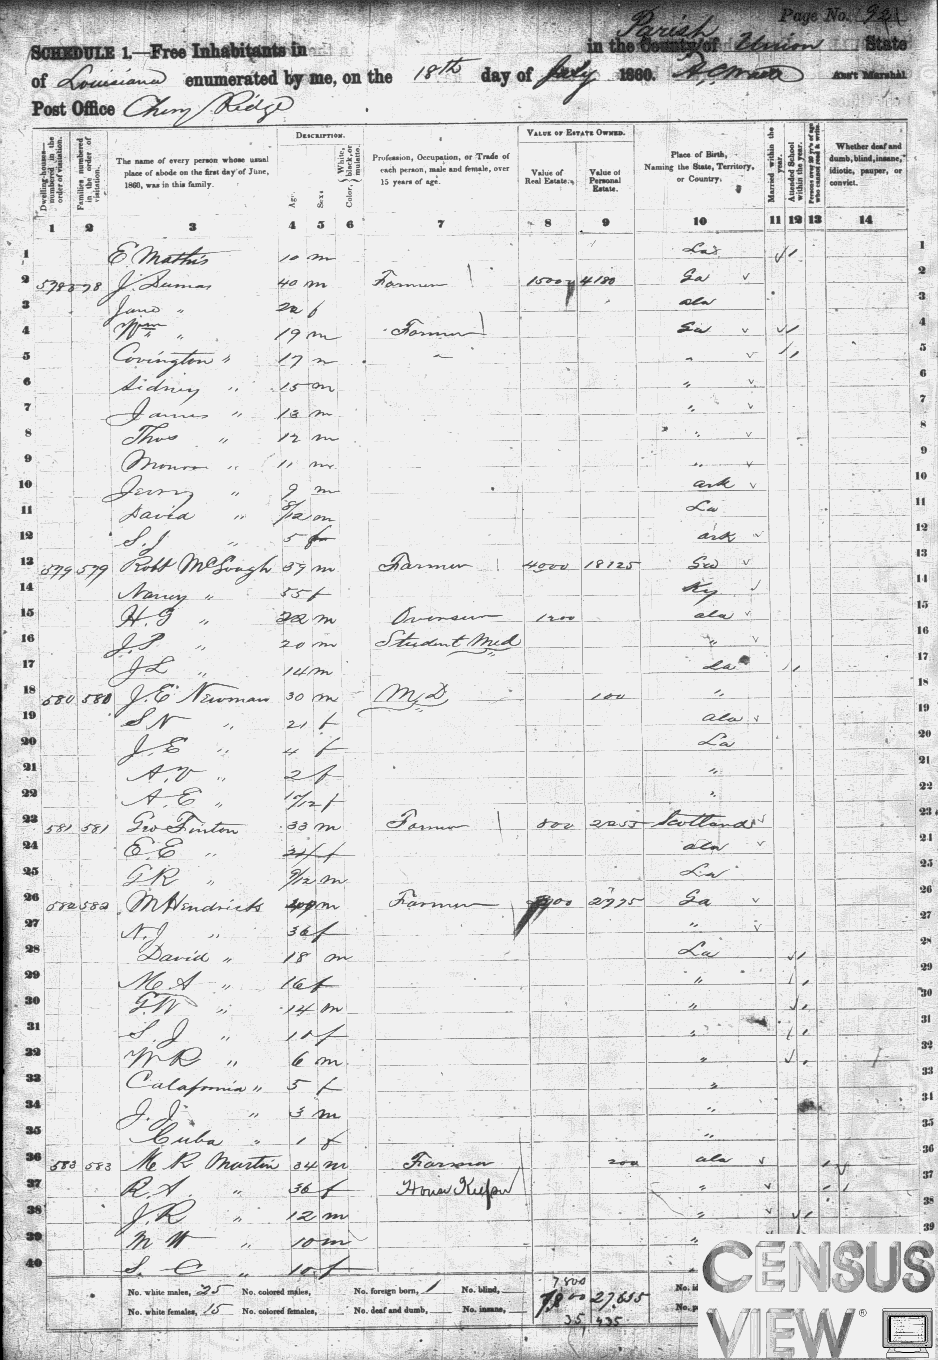 Page No. 92
SCHEDULE 1.—Free Inhabitants in in the County of Parish Union State
of Louisiana enumerated by me, on the 18th day of July 1860. Ass't Marshal.
Post Office Cherry Ridge
Dwelling-houses— numbered in the order of visitation.
Families numbered in the order of visitation.
The name of every person whose usual place of abode on the first day of June, 1860, was in this family.
DESCRIPTION.
Age.
Sex.
Color, White, black, or mulatto.
Profession, Occupation, or Trade of each person, male and female, over 15 years of age.
VALUE OF ESTATE OWNED.
Value of Real Estate.
Value of Personal Estate.
Place of Birth, Naming the State, Territory, or Country.
Married within the year.
Attended School within the year.
Persons over 20 y'rs of age who cannot read & write.
Whether deaf and dumb, blind, insane, idiotic, pauper, or convict.
1 2 3 4 5 6 7 8 9 10 11 12 13 14
1 E Mathis 10 m La 1
2 578 578 J. Dumas 40 m Farmer 1500 4180 Ga 2
3 Jane " f Ala 3
4 Wm " 19 m Farmer Ga 4
5 Covington " 17 m " " 5
6 Sidney " 15 m " 6
7 James " 13 m " 7
8 Thos " 12 m " 8
9 Monroe " 11 m " 9
10 Jerry " 9 m Ark 10
11 David " 8/12 m La 11
12 S. J. " 5 f Ark 12
13 579 579 Robt McGough 39 m Farmer 4000 18125 Geo 13
14 Nancy " 55 f Ky 14
15 H. G " 22 m Overseer 1200 Ala 15
16 J. P. " 20 m Student Med " 16
17 J L " 14 m La 17
18 580 580 J. E Newman 30 m M D 100 " 18
19 S N " 21 f Ala 19
20 J. E " 4 f La 20
21 A. V " 2 f " 21
22 A. E " f " 22
23 581 581 Geo Finton 33 m Farmer 800 2255 Scotland 23
24 E E " f Ala 24
25 G R " 9/12 m La 25
26 582 582 M Hendricks m Farmer 2775 Ga 26
27 N. J " 36 f " 27
28 David " 18 m La 28
29 M. A " 16 f " 29
30 G. W " 14 m " 30
31 S J " 10 f " 31
32 W R " 6 m " 32
33 Calafornia " 5 f " 33
34 J. J. " 3 m " 34
35 Cuba " 1 f " 35
36 583 583 M R Martin 34 m Farmer 200 Ala 36
37 R. A. " 36 f House Keeper " 37
38 J. R " 12 m " 38
39 M W " 10 m " 39
40 S. C " 10 f
No. white males, 25 No. colored males, No. foreign born, 1 No. blind, 7800
No. white females, 15 No. colored females, No. deaf and dumb, No. insane, 7800 27,655
35 435
CENSUS
VIEW®